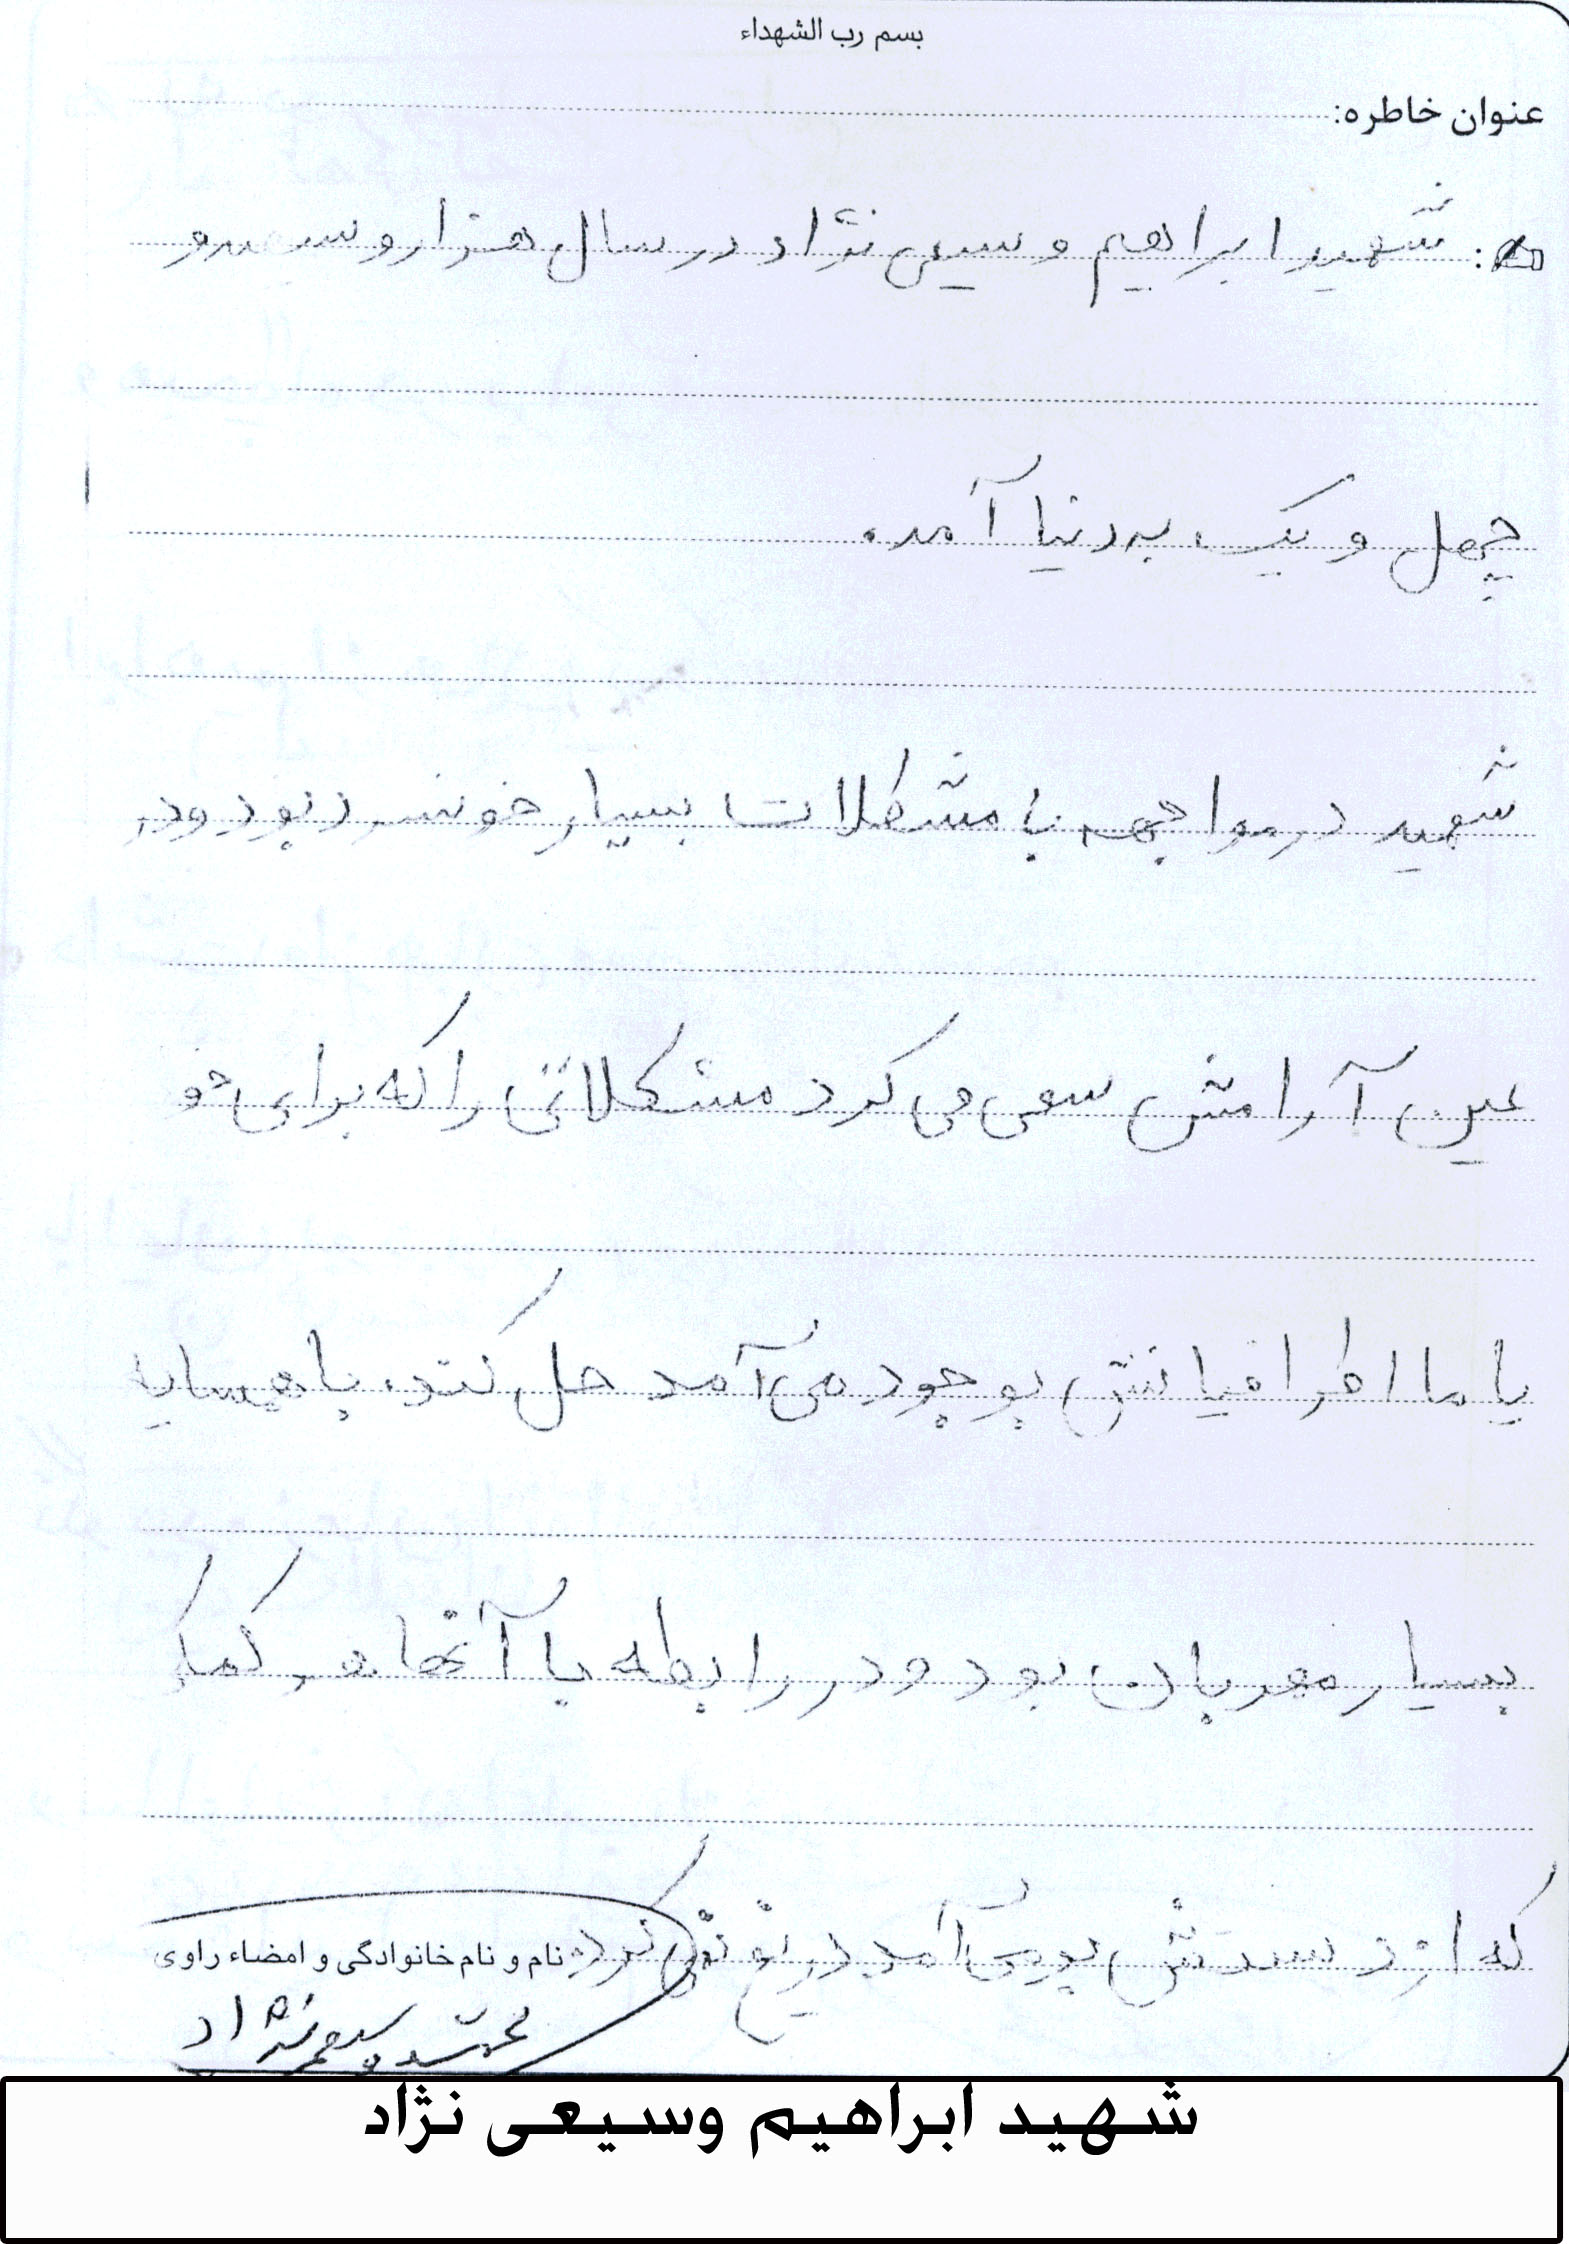 بسم رب الشهداء
عنوان خاطره:
شهید ابراهیم وسیعی نژاد در سال هزار و سیصد و
چهل و یک به دنیا آمد.
شهید در مواجهه با مشکلات بسیار خونسرد بود و در
عین آرامش سعی می کرد مشکلاتی را که برای خو
یا ما اطرافیانش بوجود می آمد حل کند. با همسایه
بسیار مهربان بود و در رابطه با آنها هر کمک
که از دستش بر می آمد دریغ نمی کرد.
نام و نام خانوادگی و امضاء راوی
وسیعی نژاد
شهید ابراهیم وسیعی نژاد